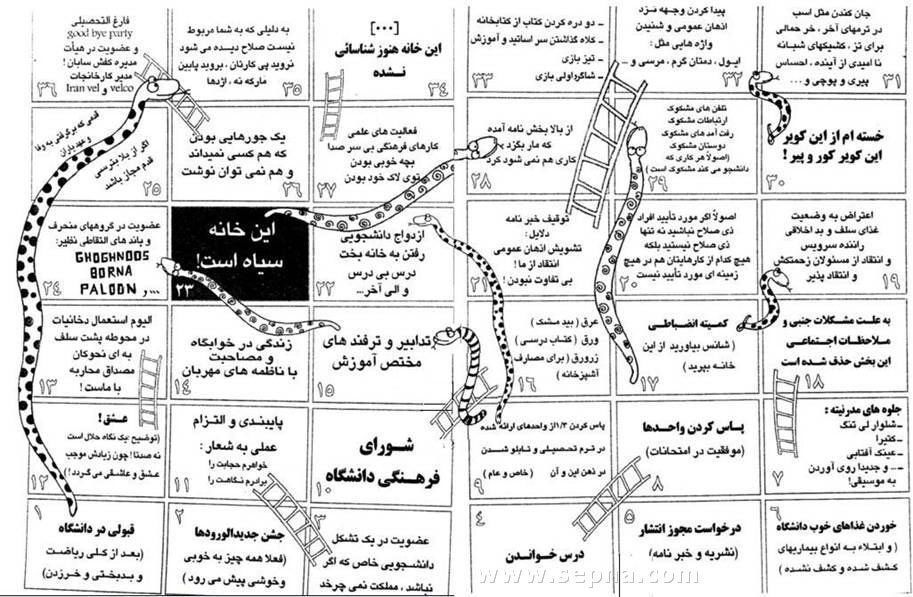 فارغ التحصیلی
good bye party
و عضویت در هیأت
مدیره کفش سابان !
مدیر کارخانجات
Iran vel و velco
۳۶
به دلیلی که به شما مربوط
نیست صلاح دیده می شود
نروید پی کارتان ، بروید پایین
مارکه نه ، اژدها
۳۵
[...]
این خانه هنوز شناسائی
نــشده
۳۴
ـ دو دره کردن کتاب از کتابخانه
ـ کلاه گذاشتن سر اساتید و آموزش
ـ تیز بازی
ـ شاگرداولی بازی
۳۳
پیدا کردن وجهه نـزد
اذهان عمومی و شنیدن
واژه هایی مثل :
ایـول ، دمتان گرم ، مرسی و ...
۳۲
جان کندن مثل اسب
در ترمهای آخر ، خر حمالی
برای تز ، کشیکهای شبـانه
نا امیدی از آینده ، احساس
پیری و پوچی و ...
۳۱
قدمی که برگرفتی به وفا
و عهد یاران
اگر از بلا بترسی
قدم مجاز باشد
۲۵
یک جورهایی بودن
که هم کسی نمیداند
و هم نمی توان نوشت
۲۶
فعالیت های علمی
کارهای فرهنگی بی سر صدا
بچه خوبی بودن
توی لاک خود بودن
۲۷
از بالا بخش نامه آمده
که مار بگزد
کاری هم نمی شود کرد
۲۸
تلفن های مشکوک
ارتباطات مشکوک
رفت آمد های مشکوک
دوستان مشکوک
(اصولاً هر کاری که
دانشجو می کند مشکوک است )
۲۹
خسته ام از این کویر
این کویر کور و پیر !
۳۰
عضویت در گروههای منحرف
و باند های التقاطی نظیر:
GHOGHNOOS
BORNA
PALOON
و ...
۲۴
این خانه
سیاه است!
۲۳
ازدواج دانشجویی
رفتن به خانه بخت
درس بی درس
و الی آخر...
۲۲
توقیف خبر نامه
دلایل :
تشویش اذهان عمومی
انتقاد از ما !
بی تفاوت نبودن !
۲۱
اصولاً اگر مورد تأیید افراد
ذی صلاح نباشید نه تنها
ذی صلاح نیستید بلکه
هیچ کدام از کارهایتان هم در هیچ
زمینه ای مورد تأیید نیست
۲۰
اعتراض به وضعیت
غذای سلف و بد اخلاقی
راننده سرویس
و انتقاد از مسئولان زحمتکش
و انتقاد پذیر
۱۹
الیوم استعمال دخانیات
در محوطه پشت سلف
به ای نحوکان
مصداق محاربه
با ماست !
۱۳
زندگی در خوابگاه
و مصاحبت
با ناظمه های مهربان
۱۴
تدابیر و ترفند های
مختص آموزش
۱۵
عرق ( بید مشک )
ورق ( کتاب درسی )
زرورق ( برای مصارف
آشپزخانه )
۱۶
کمیته انضباطی
( شانس بیاورید از این
خانــه بپرید )
۱۷
به علـت مشکلات جنبی و
ملاحظات اجتماعی
این بخش حذف شده است
۱۸
عشق !
(توضیح :یک نگاه حلال است
نه صدتا ! چون زیادش موجب
عشق و عاشقی می گردد !)
۱۲
پایبندی و التزام
عملی به شعار :
خواهرم حجابت را
برادرم نگاهت را
۱۱
شورای
فرهنگی دانشگاه
۱۰
پاس کردن ۱/۳ از واحدهای ارائه شده
در ترم تحصیلی و تابلو شدن
در ذهن این و آن ( خاص و عام )
۹
پـاس کردن واحـدها
(موفقیت در امتحانات )
۸
جلوه های مدرنیته :
ـ شلوار لی تنگ
ـ کتیرا
ـ عینک آفتابی
ـ ... و جدیدا روی آوردن
به موسیقی!
۷
۱
قبولی در دانشگاه
(بعد از کـلی ریاضت
و بدبختی و خـرزدن)
۲
جشن جدیدالورودها
( فعلا همه چیز به خوبی
وخوشی پیش می رود )
۳
عضویت در یک تشکل
دانشجویی خاص که اگر
نباشد ، مملکت نمی چرخد
۴
درس خوانـدن
۵
درخواست مجوز انتشار
(نشریه و خبر نامه)
۶
خوردن غذاهای خوب دانشگاه
( و ابتلاء بـه انواع بیماریهای
کشف شده و کشف نشده )
www.sepna.com